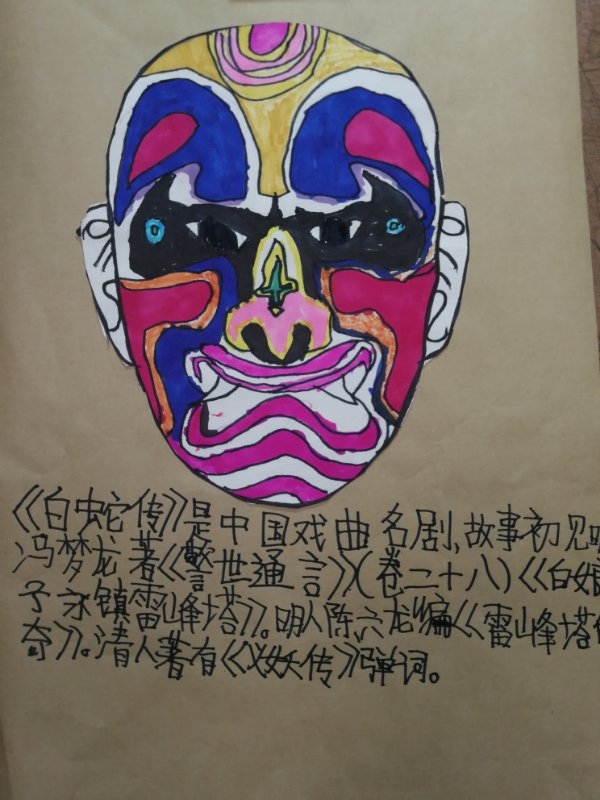 《白蛇传》是中国戏曲名剧,故事初见明
冯梦龙著《警世通言》(卷二十八)《白娘
子永镇雷峰塔》。明人陈六龙编《雷峰塔传
奇》。清人著有《义妖传》弹词。